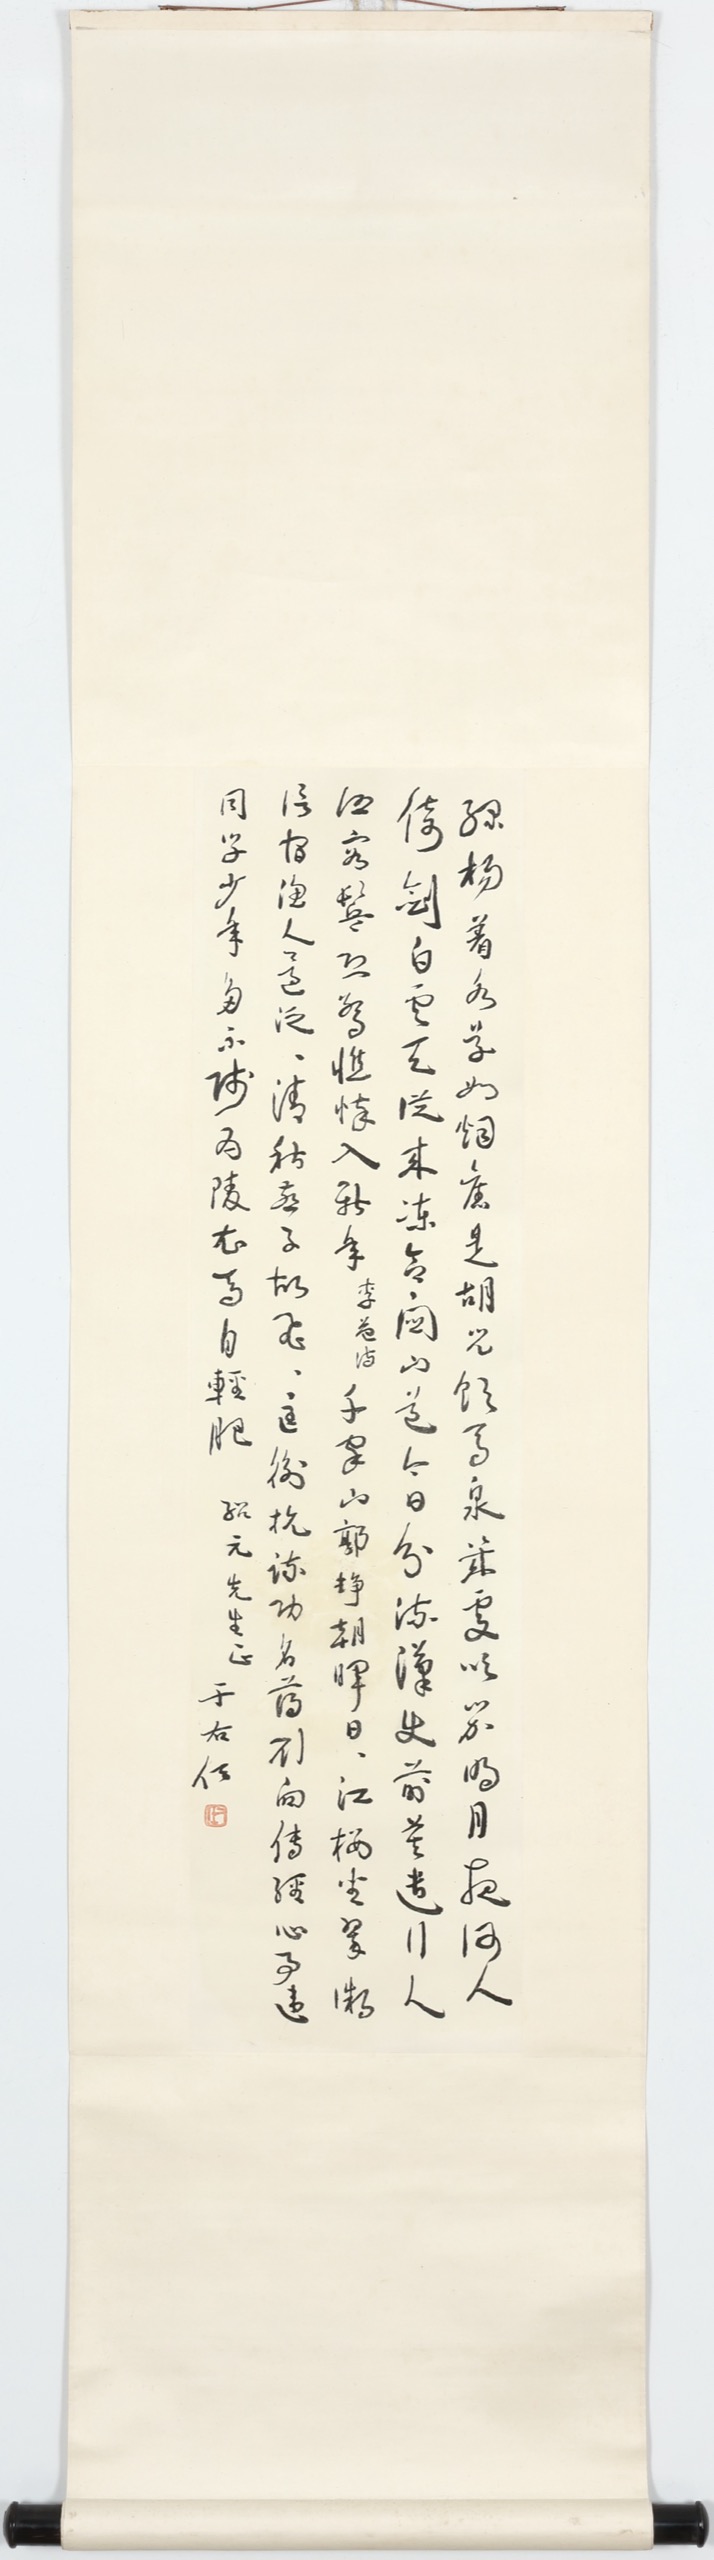 綠楊著水草如烟舊是胡兒飲馬泉幾處吹笳明月夜何人
倚劍白雲天從來凍合關山道今日分流漢使前莫遣行人
照容鬢恐驚憔悴入新年 李益詩 千家山郭靜朝暉日日江樓坐翠微
信宿漁人還泛泛清秋燕子故飛飛匡衡抗疏功名薄劉向傳經心事違
同學少年多不賤五陵衣馬自輕肥 紹元先生正
于右任